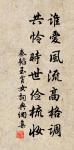 誰愛風流高格調
共憐時世儉梳妝
秦韜玉貧女詞典網集